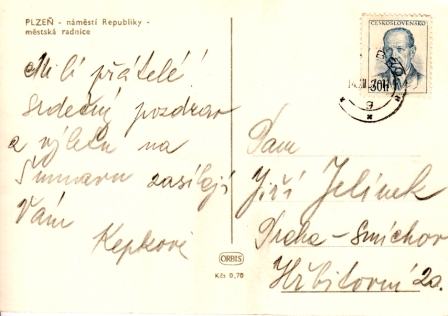 PLZEŇ - náměstí Republiky -
městská radnice
Milí přátelé!
Srdečný pozdrav
z výletu na
Šumavu zasílají
Vám
Kepkovi
ČESKOSLOVENSKO
30h
Pan
Jiří Jelínek
Praha - Smíchov
Hřbitovní 20.
ORBIS
Kčs 0,70